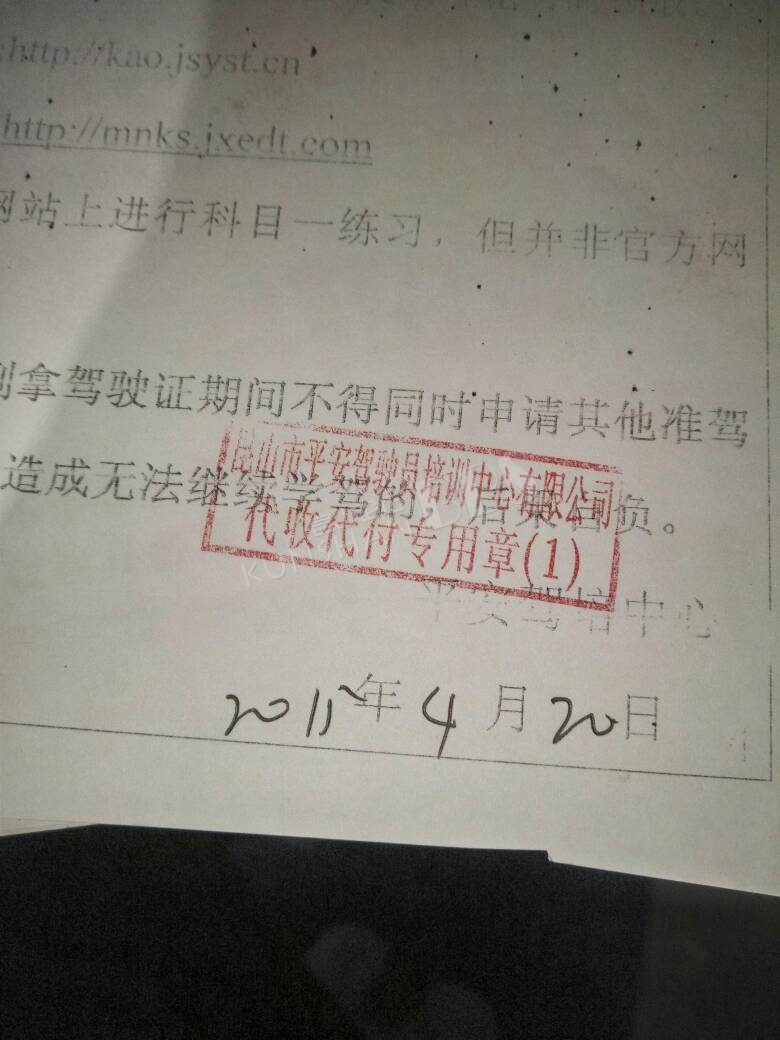 :http://kao.jsyst.cn
http://mnks.jxedt.com
网站上进行科目一练习，但并非官方网
到拿驾驶证期间不得同时申请其他准驾
造成无法继续学驾的，后果自负。
昆山市平安驾驶员培训中心有限公司
代收代付专用章(1)
平安驾培中心
2015年4月20日